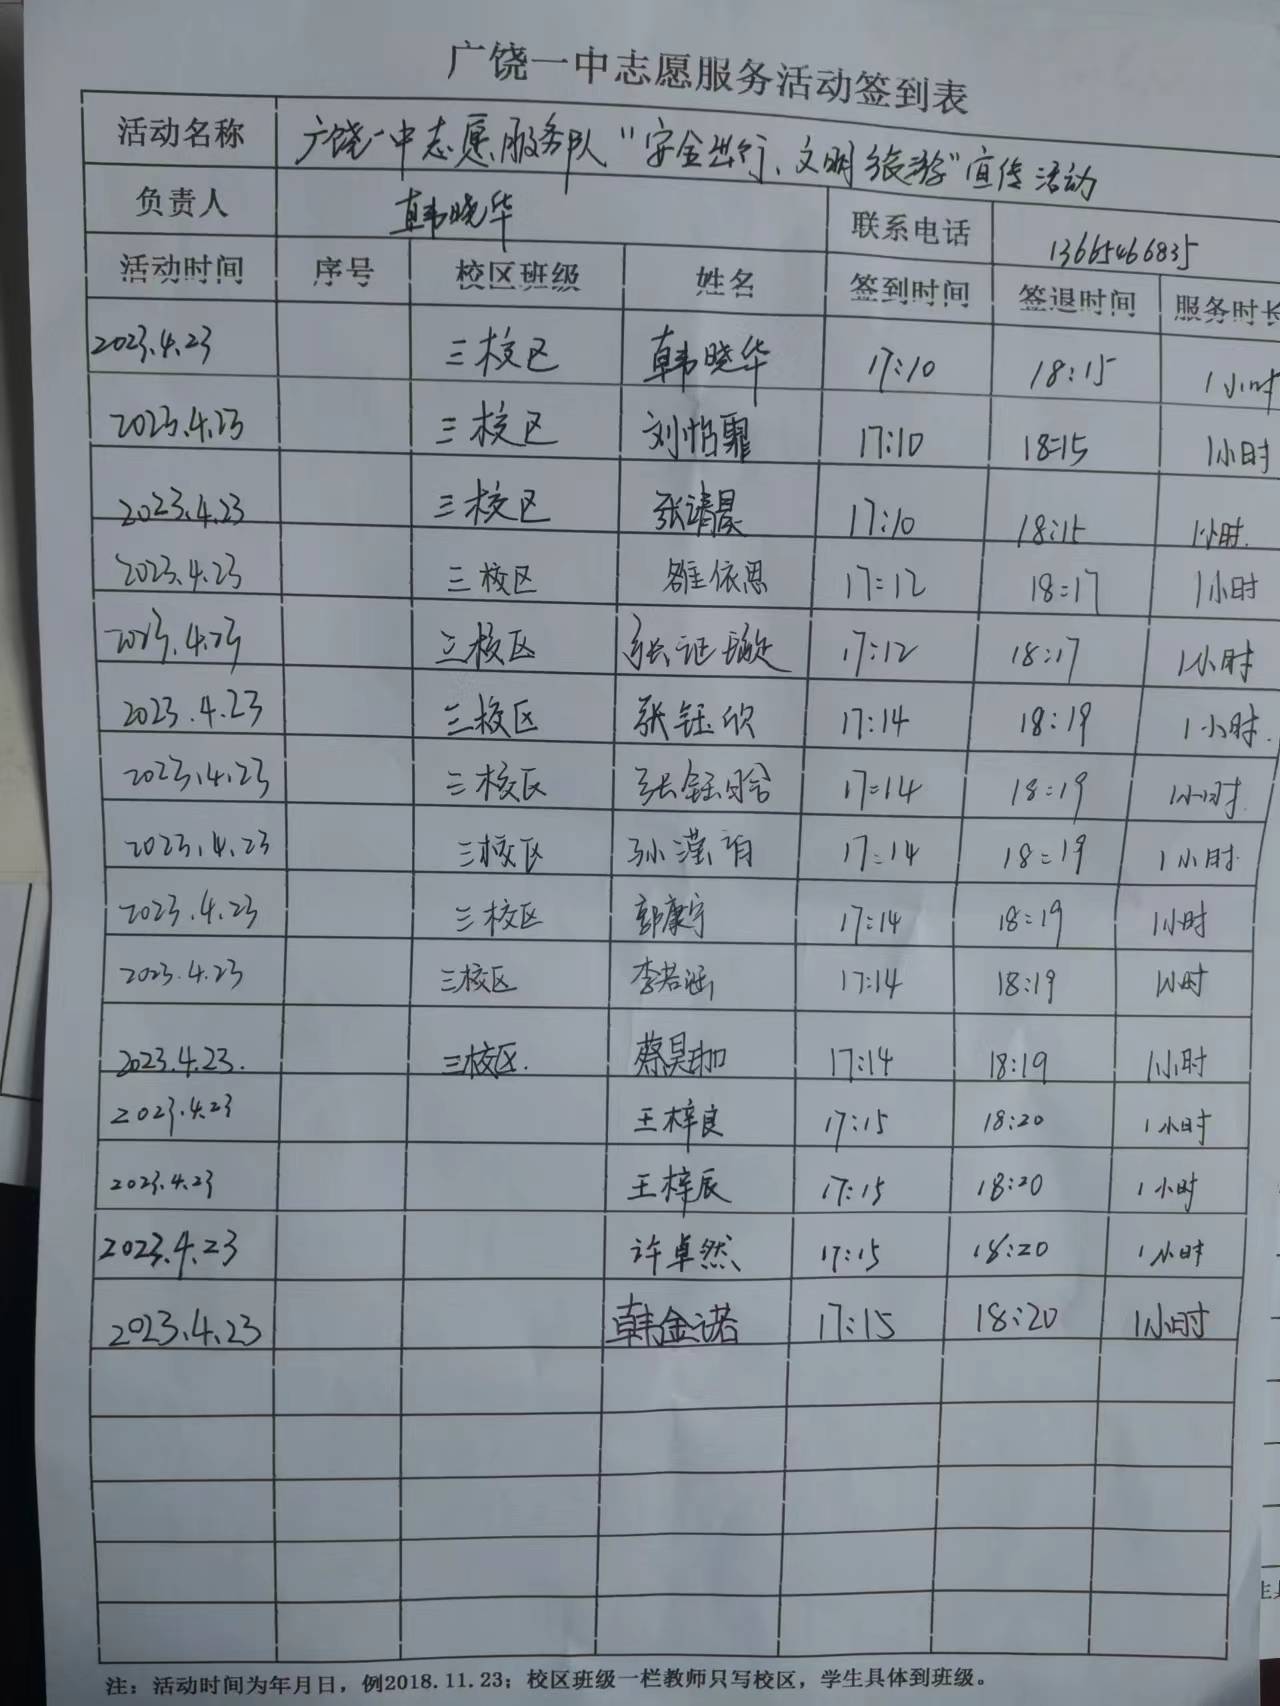 广饶一中志愿服务活动签到表
活动名称 广饶一中志愿服务队“安全出行、文明旅游”宣传活动
负责人 韩晓华 联系电话 13665466835
活动时间 序号 校区班级 姓名 签到时间 签退时间 服务时长
2023.4.23 三校区 韩晓华 17:10 18:15 1小时
2023.4.23 三校区 刘怡霏 17:10 18:15 1小时
2023.4.23 三校区 张靖晨 17:10 18:15 1小时.
2023.4.23 三校区 雒依思 17:12 18:17 1小时
2023.4.23 三校区 张证璇 17:12 18:17 1小时
2023.4.23 三校区 张钰欣 17:14 18:19 1小时.
2023.4.23 三校区 张钰晗 17:14 18:19 1小时.
2023.4.23 三校区 孙滢 17:14 18:19 1小时.
2023.4.23 三校区 郭康宇 17:14 18:19 1小时
2023.4.23 三校区 李若涵 17:14 18:19 1小时
2023.4.23. 三校区. 蔡昊珈 17:14 18:19 1小时
2023.4.23 王梓良 17:15 18:20 1小时
2023.4.23 王梓辰 17:15 18:20 1小时
2023.4.23 许卓然 17:15 18:20 1小时
2023.4.23 韩金诺 17:15 18:20 1小时
注：活动时间为年月日，例2018.11.23；校区班级一栏教师只写校区，学生具体到班级。